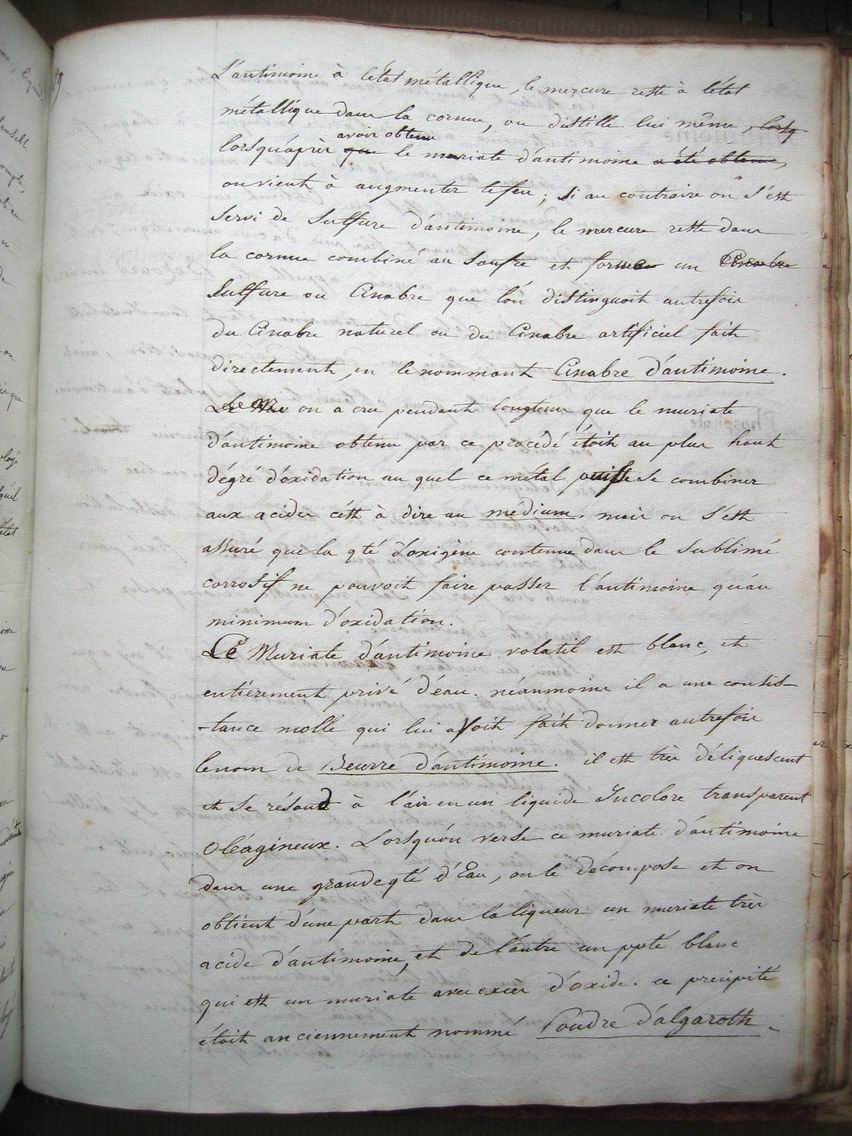 L'antimoine à l'état métallique, le mercure reste à l'état
métallique dans la cornue, ou distille lui même, lorsq
avoir obtenu
lorsqu'après que le muriate d'antimoine a été obtenu,
on vient à augmenter le feu; si au contraire on s'est
servi de sulfure d'antimoine, le mercure reste dans
la cornue combiné au soufre et forme un Cinabre
sulfure ou Cinabre que l'on distinguoit autrefois
du Cinabre naturel ou du Cinabre artificiel fait
directement, en le nommant Cinabre d'antimoine.
on a cru pendant longtems que le muriate
d'antimoine obtenu par ce procédé étoit au plus haut
dégré d'oxidation au quel ce métal puisse se combiner
aux acides c'est à dire au medium. mais on s'est
assuré que la qté d'oxigène contenue dans le sublimé
corrosif ne pouvoit faire passer l'antimoine qu'au
minimum d'oxidation.
Le Muriate d'antimoine volatil est blanc, et
entiérement privé d'eau. néanmoins il a une consis-
-tance molle qui lui avoit fait donner autrefois
le nom de Beurre d'antimoine. il est très déliquescent
et se résoud à l'air en un liquide Incolore transparent
oléagineux. Lorsqu'on verse ce muriate d'antimoine
dans une grande qté d'Eau, on le décompose et on
obtient d'une part dans la liqueur un muriate très
acide d'antimoine, et de l'autre un ppté blanc
qui est un muriate avec excès d'oxide. ce précipité
étoit anciennement nommé Poudre d'algaroth.